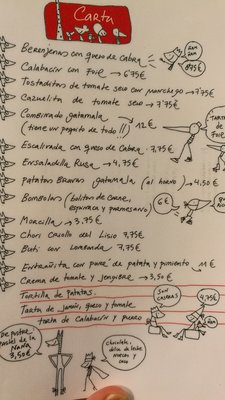 Carta
Berenjenas con queso de cabra
Ñam Ñam
8'75€
Calabacín con foie → 6'75€
Tostaditas de tomate seco con manchego → 7'75€
Cazuelita de tomate seco → 7'75€
Combinado gatamala
(tiene un poquito de todo!!) 12€
Escalivada con queso de cabra 7,75€
Ensaladilla Rusa → 4,75€
Patatas Bravas gatamala (al horno) → 4,50€
Bombolors (bolitas de carne,
espinaca y parmesano)
6€
Morcilla → 3,75€
Chori Criollo del Lisio 7,75€
Buti con Lombarda 7,75€
Entrañita con puré de patata y pimiento 11€
Crema de tomate y jengibre → 3,50€
Tortilla de Patatas.
Tarta de jamón, queso y tomate
Tarta de calabacín y puerro
Son
caseras
4,75€
De postre
pastel de la
Nanna
3,50€
chocolate,
dulce de leche